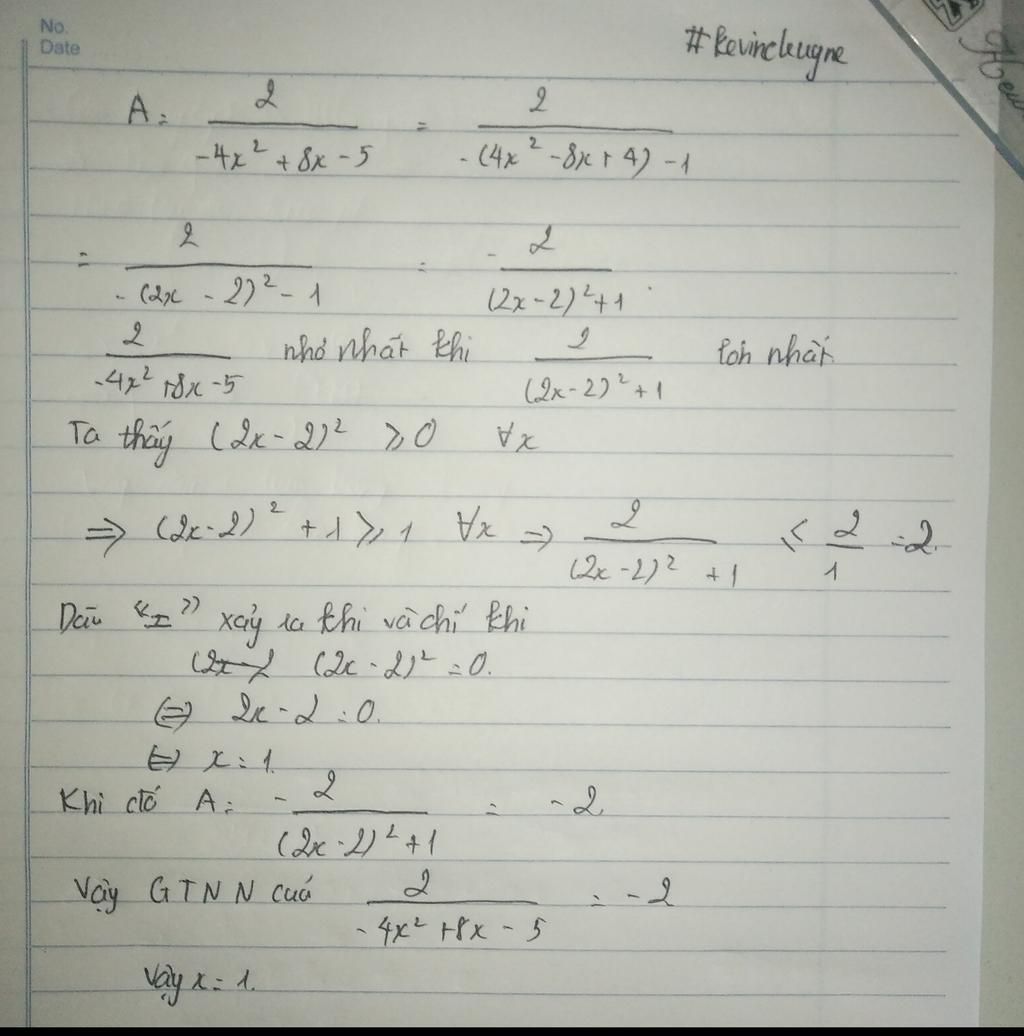 No.
Date
#kevincleugne
A = \frac{2}{-4x^2 + 8x - 5} = \frac{2}{-(4x^2 - 8x + 4) - 1}
= \frac{2}{-(2x - 2)^2 - 1} = -\frac{2}{(2x - 2)^2 + 1}.
\frac{2}{-4x^2 + 8x - 5} nhỏ nhất khi \frac{2}{(2x - 2)^2 + 1} lớn nhất
Ta thấy (2x - 2)^2 ≥ 0 ∀x
⇒ (2x - 2)^2 + 1 ≥ 1 ∀x ⇒ \frac{2}{(2x - 2)^2 + 1} ≤ \frac{2}{1} = 2.
Dấu "=" xảy ra khi và chỉ khi
(2x - 2)^2 = 0.
⇔ 2x - 2 = 0.
⇔ x = 1.
Khi đó A = -\frac{2}{(2x - 2)^2 + 1} = -2
Vậy GTNN của \frac{2}{-4x^2 + 8x - 5} = -2
Vậy x = 1.